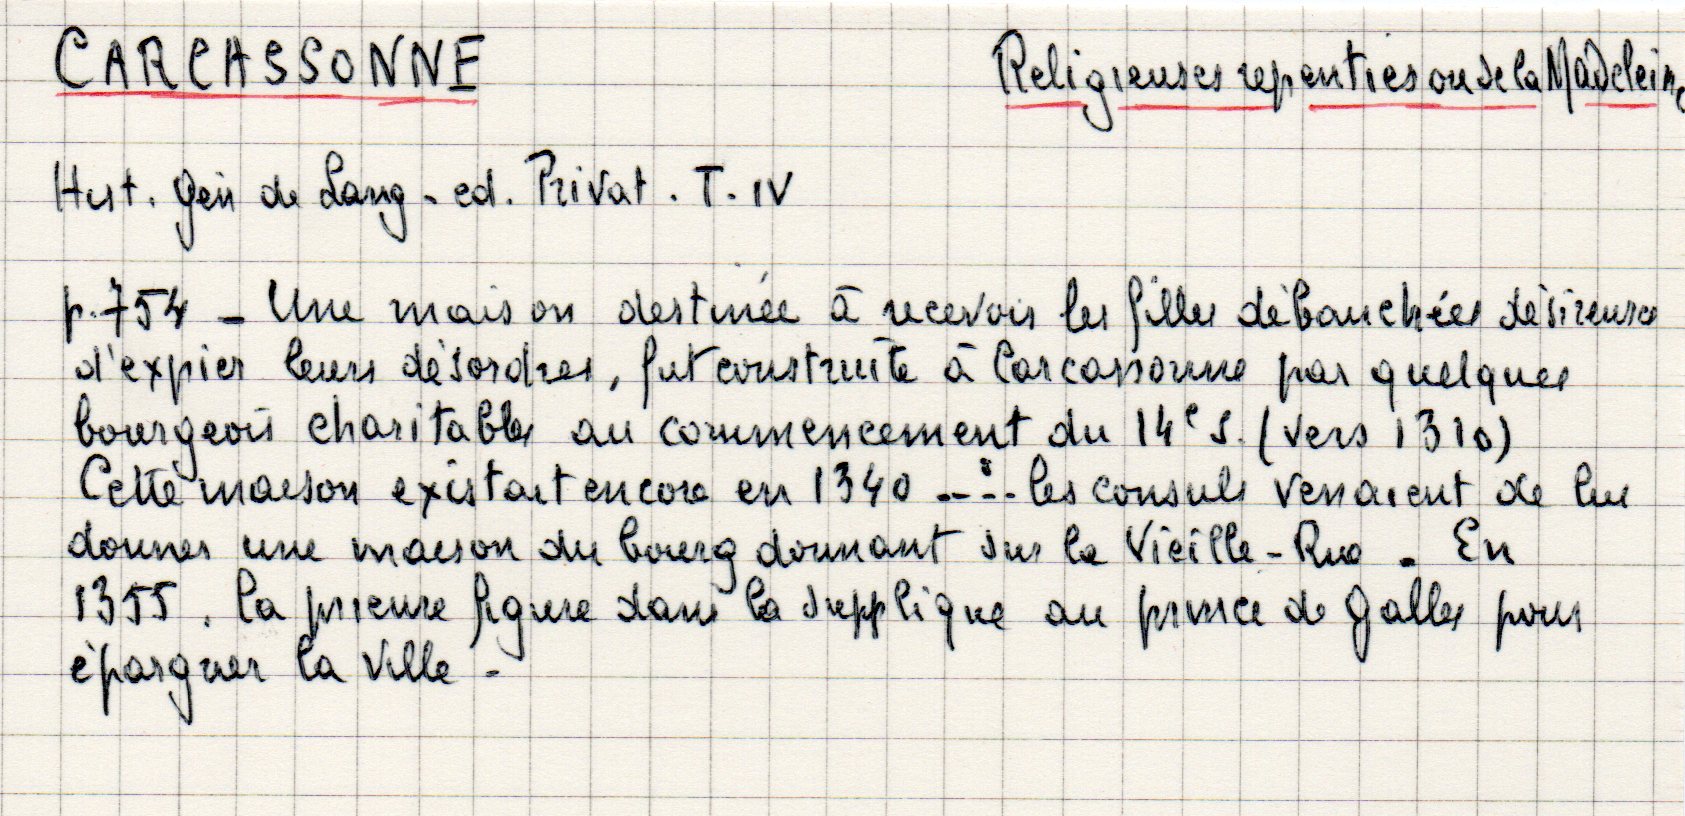 CARCASSONNE
Religieuses repenties ou de la Madeleine
Hist. Gén de Lang - ed. Privat . T. IV
p.754 - Une maison destinée à recevoir les filles débauchées désireuses
d'expier leurs désordres, fut construite à Carcassonne par quelques
bourgeois charitables au commencement du 14e s. (vers 1310)
Cette maison existait encore en 1340 ---:-- les consuls venaient de leur
donner une maison du bourg donnant sur la Vieille-Rue . En
1355, la prieure figure dans la supplique au prince de Galles pour
épargner la ville -